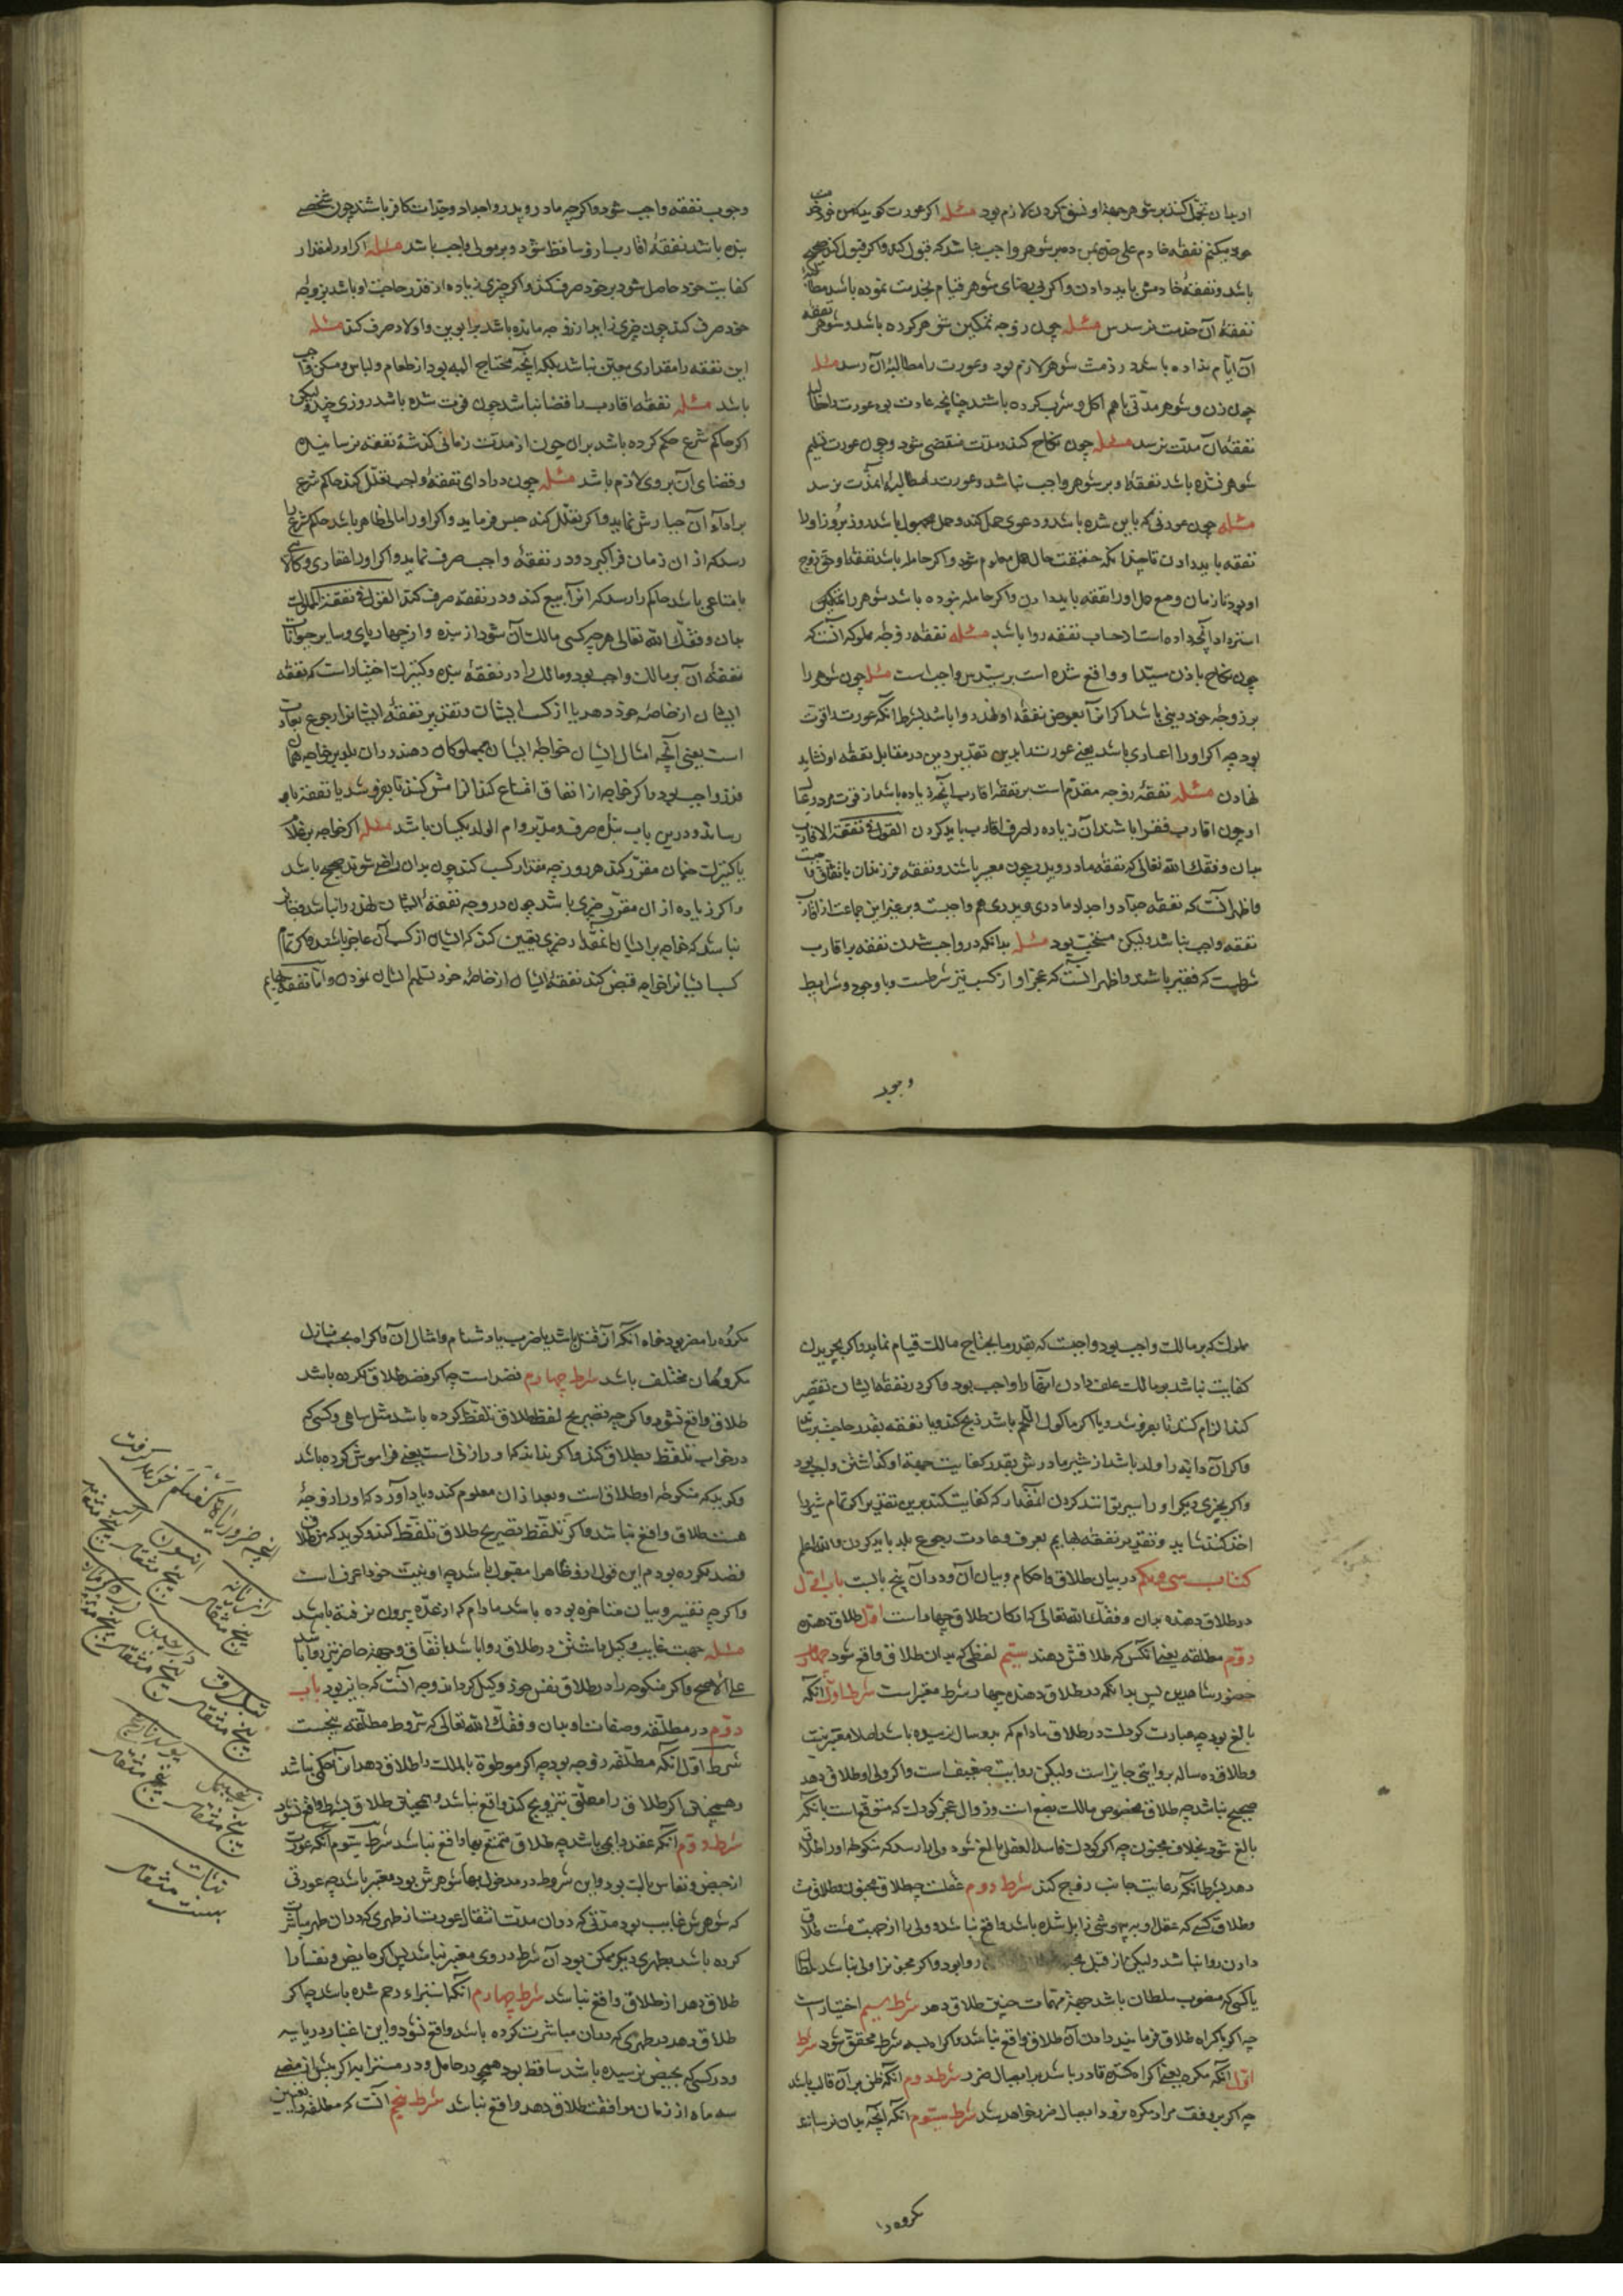 باشد و نفقهٔ خادمش باید دادن و اگر بی رضای شوهر قیام بخدمت نموده باشد
نفقهٔ آن خدمت نرسدش مسئله چون زوجه تمکین شوهر کرده باشد و شوهر نفقه
آن ایام نداده باشد در ذمت شوهر لازم بود و عورت را مطالبهٔ آن رسد مسئله
چون زن و شوهر مدتی باهم اکل و شرب کرده باشند چنانچه عادت بود عورت را
نفقهٔ آن مدت نرسد مسئله چون نکاح کند و مدت منقضی شود و چون عورت تسلیم
شوهر نشده باشد نفقه او بر شوهر واجب نباشد و عورت را مطالبهٔ آن مدت نرسد
نفقه باید دادن تا چندانکه حقیقت حال حمل معلوم شود و اگر حامله باشد نفقه او حق زوج
او بود تا زمان وضع حمل او را نفقه باید دادن و اگر حامله نبوده باشد شوهر را
استرداد آنچه داده است از حساب نفقه روا باشد مسئله نفقه زوجه مملوکه آنست که
چون نکاح باذن سید او واقع شده است بر سیدش واجب است مسئله چون شوهر را
بر زوجه خود دینی باشد اگر آنرا بعوض نفقه او نهد روا باشد بشرط آنکه عورت را قوت
بود چه اگر او را اعساری باشد یعنی عورت را بدین تقدیر دین در مقابل نفقه او نشاید
نهادن مسئله نفقهٔ زوجه مقدم است بر نفقهٔ اقارب آنچه زیاده باشد از قوت
او چون اقارب فقرا باشند آن زیاده را صرف اقارب باید کردن القول فی نفقة الاقارب
بدان وفقک الله تعالی که نفقه مادر و پدر چون معسر باشند و نفقه فرزندان باتفاق واجبست
و اظهر آنست که نفقه جدات و اجداد مادری و پدری هم واجبست و بر غیر این جماعت از اقارب
نفقه واجب نباشد ولیکن مستحب بود مسئله بدانکه در واجب شدن نفقه بر اقارب
شرطست که فقیر باشند و اظهر آنست که عجز او از کسب نیز شرطست و با وجود شرایط
وجوب
وجوب نفقه واجب شود و اگر چه مادر و پدر و اجداد و جدات کافر باشند چون شخصی
بنده باشد نفقهٔ اقارب از او ساقط شود و بر مولی واجب باشد مسئله اگر او را مقدار
کفایت خود حاصل شود بر خود صرف کند و اگر چیزی زیاده از قدر حاجت او باشد بر زوجه
خود صرف کند چون چیزی زاید از زوجه مانده باشد بر ابوین و اولاد صرف کند مسئله
این نفقه را مقداری معین نباشد بلکه آنچه محتاج الیه بود از طعام و لباس و مسکن واجب
باشد مسئله نفقهٔ اقارب را قضا نباشد چون فوت شده باشد روزی چند ولیکن
اگر حاکم شرع حکم کرده باشد بدان چون از مدت زمانی گذشته نفقه نرسانیده
و قضای آن بر وی لازم باشد مسئله چون در ادای نفقهٔ واجب تعلل کند حاکم شرع
بر اداء آن جبارش نماید و اگر تعلل کند حبس فرماید و اگر او را مالی ظاهر باشد حاکم شرع را
رسد که از آن زمان فراگیرد و در نفقهٔ واجب صرف نماید و اگر او را عقاری و کالائی
یا متاعی باشد حاکم را رسد که آنرا بیع کند و در نفقه صرف کند القول فی نفقة المملوک
بدان وفقک الله تعالی هر چه کسی مالک آن شود از بنده و از چهارپای و سایر حیوانات
نفقهٔ آن بر مالک واجب بود و مالک را در نفقهٔ بنده و کنیزک اختیار است که نفقه
ایشان از خاصهٔ خود دهد یا از کسب ایشان و تقدیر نفقهٔ ایشانرا رجوع بعادت
است یعنی آنچه امثال ایشان خواجه ایشان بمملوکان دهند در آن بلد بر خواجه همان
قدر واجب بود و اگر خواجه از انفاق امتناع کند الزامش کنند تا بفروشد یا نفقه باو
رساند و درین باب بندهٔ صرف و مدبر و ام الولد یکسان باشد مسئله اگر خواجه بر غلام
یا کنیزک چنان مقرر کند هر روز چه مقدار کسب کند چون بدان راضی شوند صحیح باشد
و اگر زیاده از آن مقرر چیزی باشد چون در وجه نفقهٔ ایشان نهد روا باشد
نباشد که خواجه بر ایشان آنقدر چیزی تعیین کند که ایشان از کسب آن عاجز باشند
کسب ایشانرا خواجه قبض کند نفقهٔ ایشان از خاصهٔ خود تسلیم ایشان نمودن و اما نفقه بهایم
مملوک که بر مالک واجب بود واجبست که بقدر ما یحتاج مالک قیام نماید و اگر بچریدن
کفایت نباشد بر مالک علف دادن آنها را واجب بود و اگر در نفقهٔ ایشان تقصیر
کند الزام کنند تا بفروشد و یا اگر ماکول اللحم باشد ذبح کند و یا نفقه بقدر حاجت برساند
و اگر آن دابه را ولد باشد از شیر مادرش بقدر کفایت جهة او گذاشتن واجب بود
و اگر بچیزی دیگر او را سیر توانند کردن آنقدر که کفایت کند بدین تقدیر اگر تمام شیر را
اخذ کنند شاید و تقدیر نفقه بهایم بعرف و عادت رجوع بلد باید کردن والله اعلم
کتاب سی و یکم در بیان طلاق و احکام و بیان آن و در آن پنج بابست باب اول
در طلاق دهنده بدان وفقک الله تعالی که ارکان طلاق چهار است اول طلاق دهنده
دوم مطلقه یعنی آنکس که طلاقش دهند سیم لفظی که بدان طلاق واقع شود چهارم
حضور شاهدین پس بدانکه در طلاق دهنده چهار شرط معتبر است شرط اول آنکه
بالغ بود چه عبارت کودک در طلاق مادام که بده سال نرسیده باشد اصلا معتبر نیست
و طلاق ده ساله بروایتی جایز است ولیکن روایت ضعیف است و اگر ولی او طلاق دهد
صحیح نباشد چه طلاق مخصوص مالک بضع است و زوال عجز کودک که متوقع است بآنکه
بالغ شود بخلاف مجنون چه اگر کودک فاسد العقل بالغ شود ولی را رسد که منکوحه او را طلاق
دهد بشرط آنکه رعایت جانب او کند شرط دوم عقلست چه طلاق مجنون طلاق نیست
و طلاق کسی که عقل او به بیهوشی زایل شده باشد واقع نباشد و ولی را از جهت طلاق
دادن روا نباشد ولیکن از قبل روا بود و اگر مجنونرا ولی نباشد سلطان
یا کسی که منصوب سلطان باشد جهة مهمات طلاق دهد شرط سیم اختیارست
چه اگر باکراه طلاق فرمایند دادن آن طلاق واقع نباشد و اکراه بسه شرط محقق شود شرط
اول آنکه مکره یعنی اکراه کننده قادر باشد بر ایصال ضرر شرط دوم آنکه ظن بر آن غالب باشد
چه اگر بر وفق مراد مکره نرود ایصال ضرر خواهد شد شرط سیوم آنکه آنچه بدان ترساند
مکروه را
مکروه را مضر بود خواه آنکه از قتل باشد یا ضرب یا دشنام و امثال آن و اکراه بحسب
مکروهان مختلف باشد شرط چهارم قصد است چه اگر قصد طلاق نکرده باشد
طلاق واقع نشود و اگر چه تصریح لفظ طلاق تلفظ کرده باشد مثل ساهی و کسی که
در خواب تلفظ بطلاق کند و اگر نداند که او را زنی است یعنی فراموش کرده باشد
و گوید که منکوحه او طلاق است و بعد از آن معلوم کند و یاد آورد که او را زوجهٔ
هست طلاق واقع نباشد و اگر تلفظ بتصریح طلاق تلفظ کند و گوید که من طلاق
قصد نکرده بودم این قول ازو ظاهرا مقبول باشد چه او بنیت خود اعرف است
و اگر چه تفسیر و بیان متاخر بوده باشد مادام که از عده بیرون نرفته باشد
مسئله جهت غایب وکیل داشتن در طلاق روا باشد باتفاق و جهة حاضر نیز روا باشد
علی الاصح و اگر منکوحه را در طلاق نفس خود وکیل گرداند وجه آنست که جایز بود باب
دوم در مطلقه و صفات او بدان وفقک الله تعالی که شروط مطلقه پنجست
شرط اول آنکه مطلقه زوجه بود چه اگر موطوءة بالملک را طلاق دهد آنرا حکمی نباشد
و همچنین اگر طلاق را معلق بتزویج کند واقع نباشد و همچنین طلاق بشرط واقع نشود
شرط دوم آنکه عقد دایم باشد چه طلاق متمتع بها واقع نباشد شرط سیوم آنکه عورت
از حیض و نفاس پاک بود و این شروط در مدخول بها که شوهرش بود معتبر باشد چه عورتی
که شوهرش غایب بود مدتی که در آن مدت انتقال عورت از طهری که در آن طهر مباشرت
کرده باشد بطهری دیگر ممکن بود آن شرط در وی معتبر نباشد پس اگر حایض و نفسا را
طلاق دهد آن طلاق واقع نباشد شرط چهارم آنکه استبراء رحم شده باشد چه اگر
طلاق دهد در طهری که در آن مباشرت کرده باشد واقع نشود و این اعتبار در یایسه
و در کسی که بحیض نرسیده باشد ساقط بود همچنین در حامل و در مسترابه اگر پیش از مضی
سه ماه از زمان مواقعت طلاق دهد واقع نباشد شرط پنجم آنست که مطلقه را تعیین
رازیانه پنج مثقال
انیسون پنج مثقال
پنج مثقال
زنجبیل پنج مثقال
نبات بیست مثقال